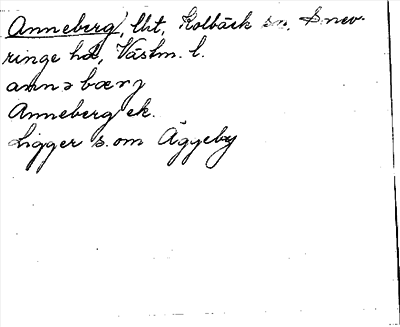 Anneberg, lht, Kolbäck sn, Snev-
ringe hd, Västm. l.
annə bærj
Anneberg ek.
Ligger s. om Äggeby